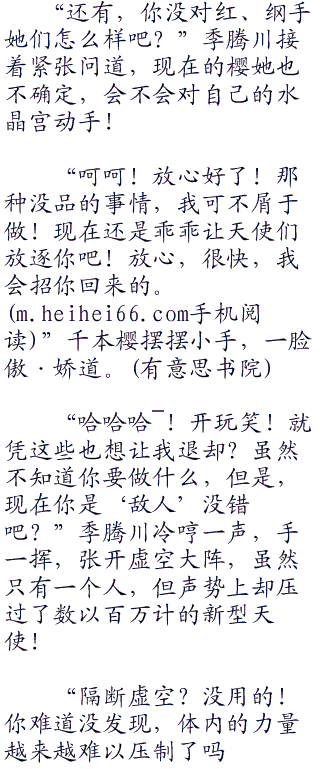 “还有，你没对红、纲手
她们怎么样吧？”季腾川接
着紧张问道，现在的樱她也
不确定，会不会对自己的水
晶宫动手！
“呵呵！放心好了！那
种没品的事情，我可不屑于
做！现在还是乖乖让天使们
放逐你吧！放心，很快，我
会招你回来的。
(m.heihei66.com手机阅
读)”千本樱摆摆小手，一脸
傲·娇道。(有意思书院)
“哈哈哈¯！开玩笑！就
凭这些也想让我退却？虽然
不知道你要做什么，但是，
现在你是‘敌人’没错
吧？”季腾川冷哼一声，手
一挥，张开虚空大阵，虽然
只有一个人，但声势上却压
过了数以百万计的新型天
使！
“隔断虚空？没用的！
你难道没发现，体内的力量
越来越难以压制了吗